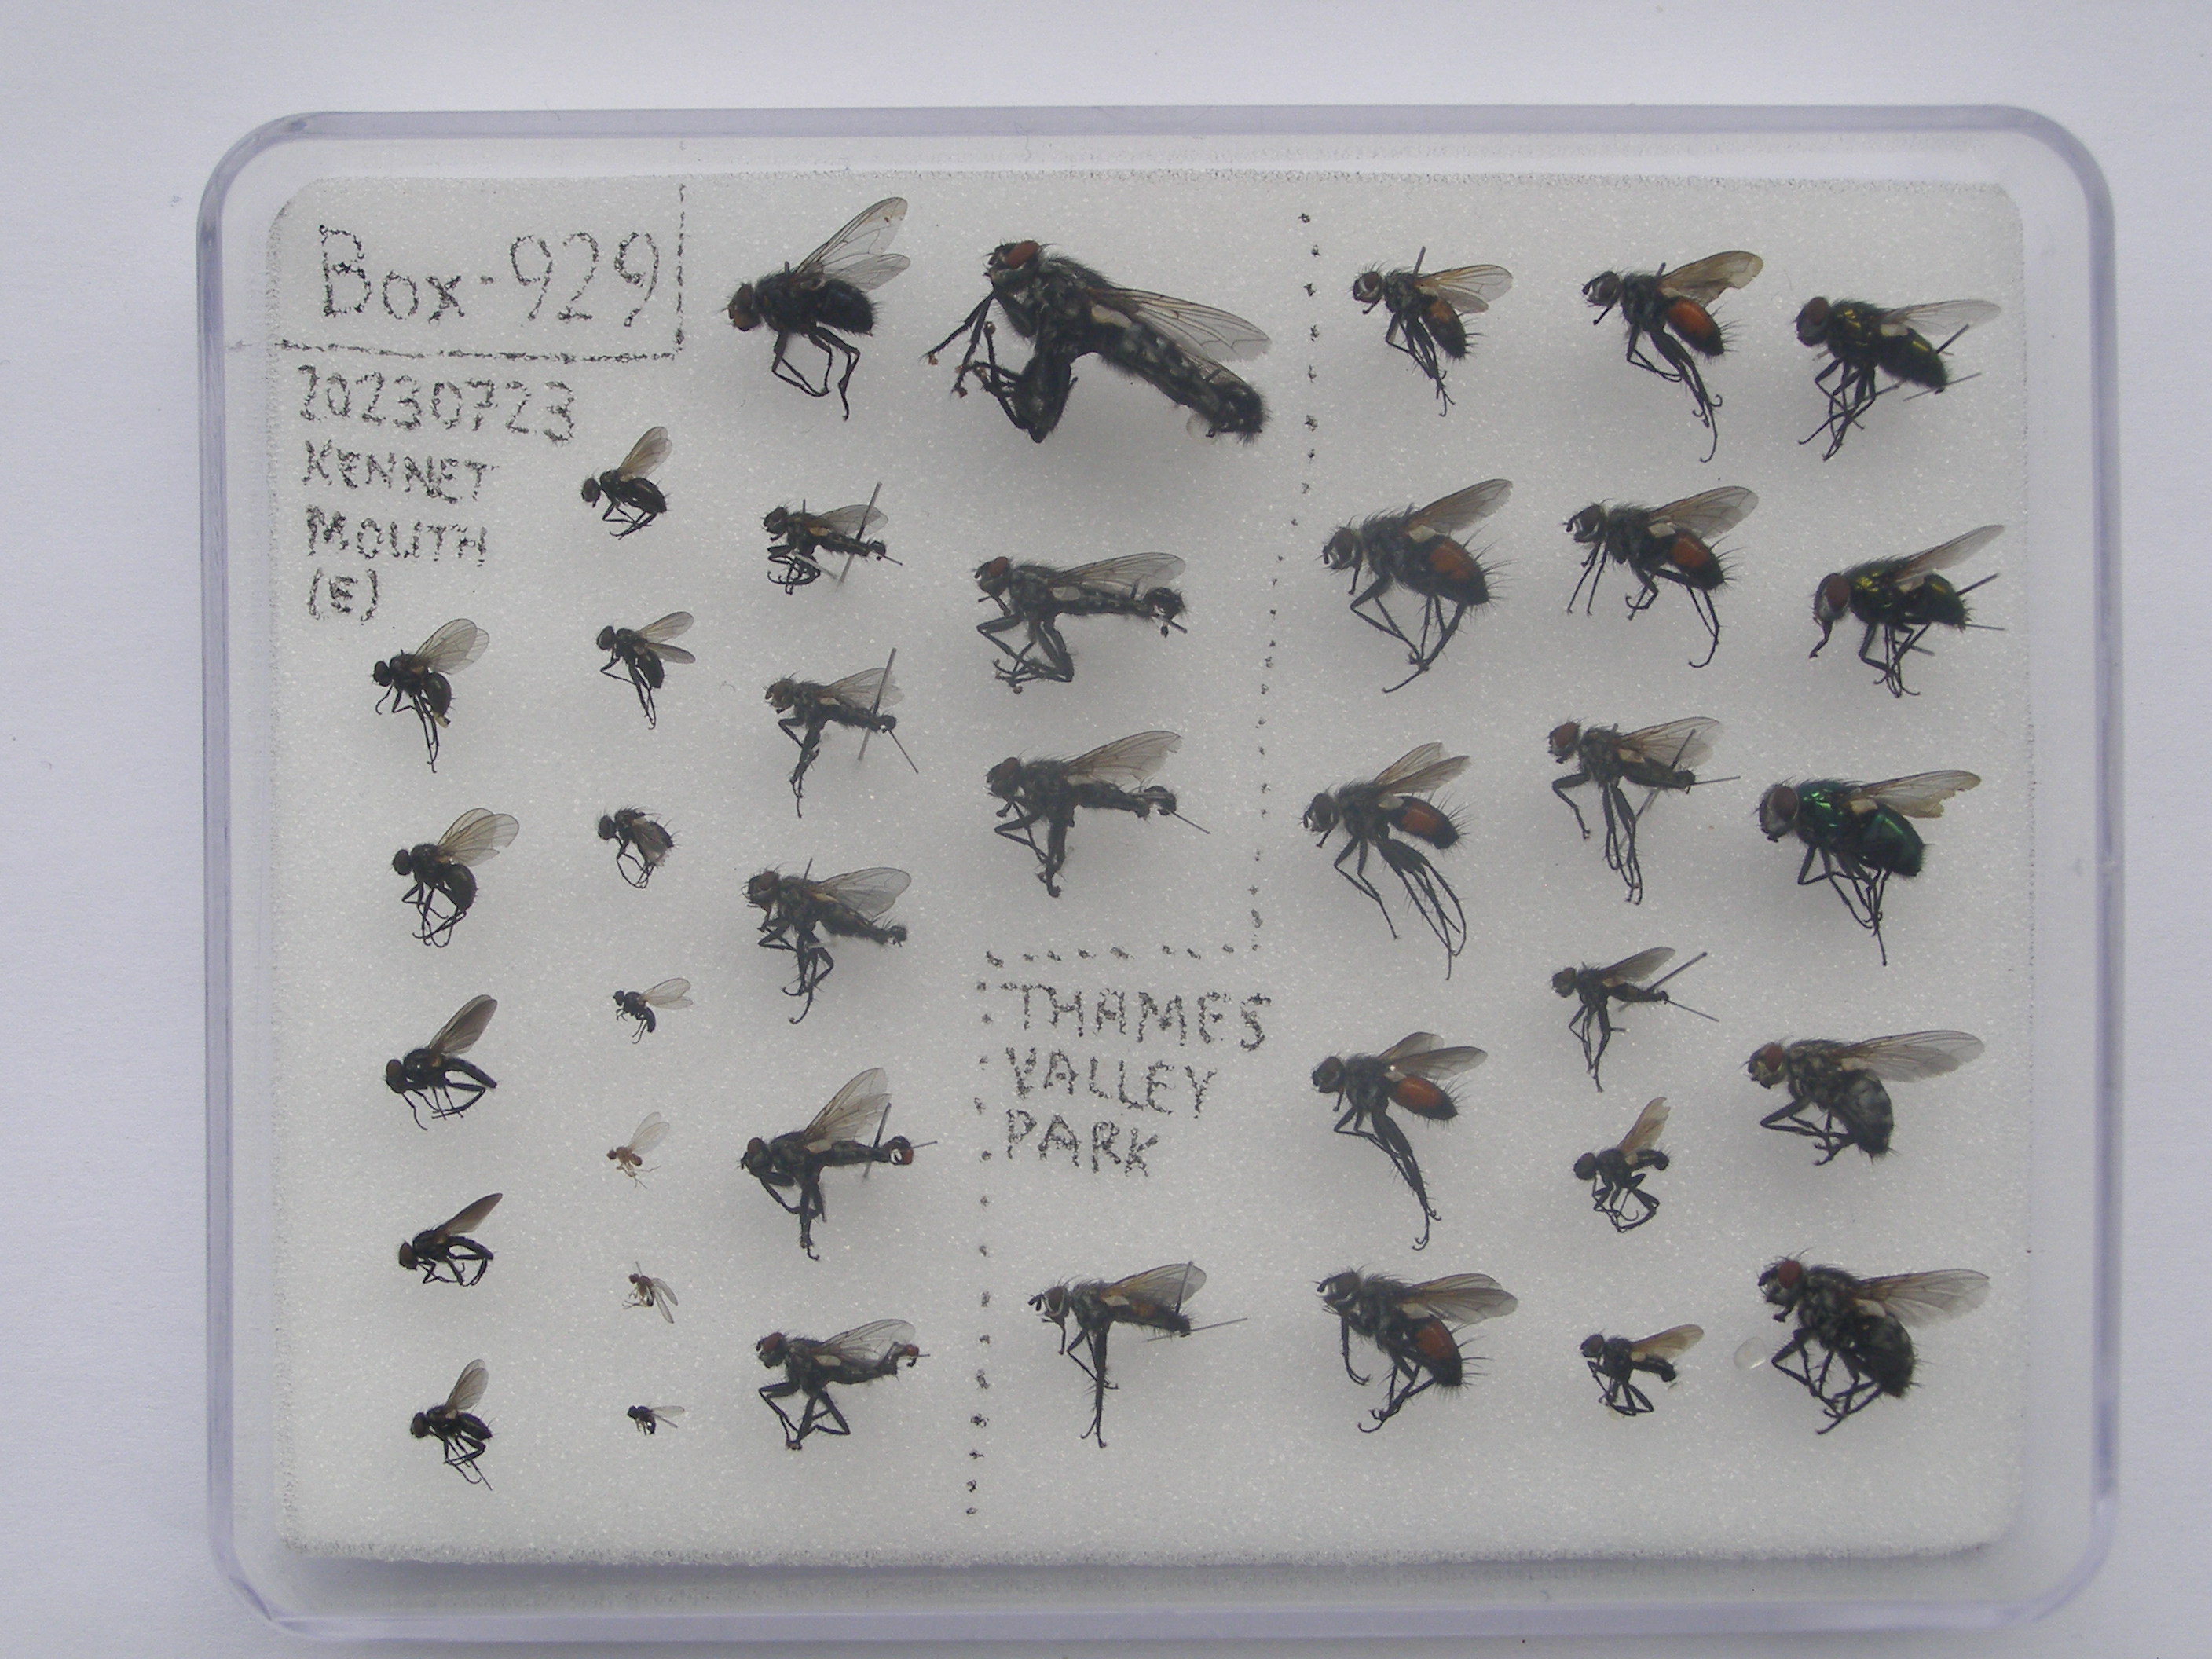 Box-929
20230723
KENNET
MOUTH
(E)
THAMES
VALLEY
PARK